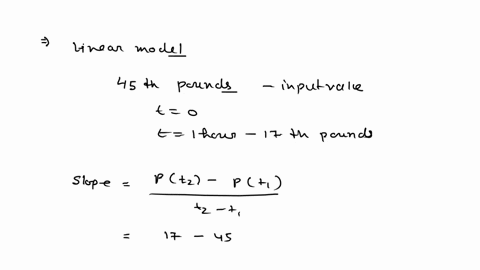 ⇒ Linear model
45 th pounds - input value
t = 0
t = 1 hour - 17 th pounds
Slope = P(t₂) - P(t₁) / t₂ - t₁
= 17 - 45